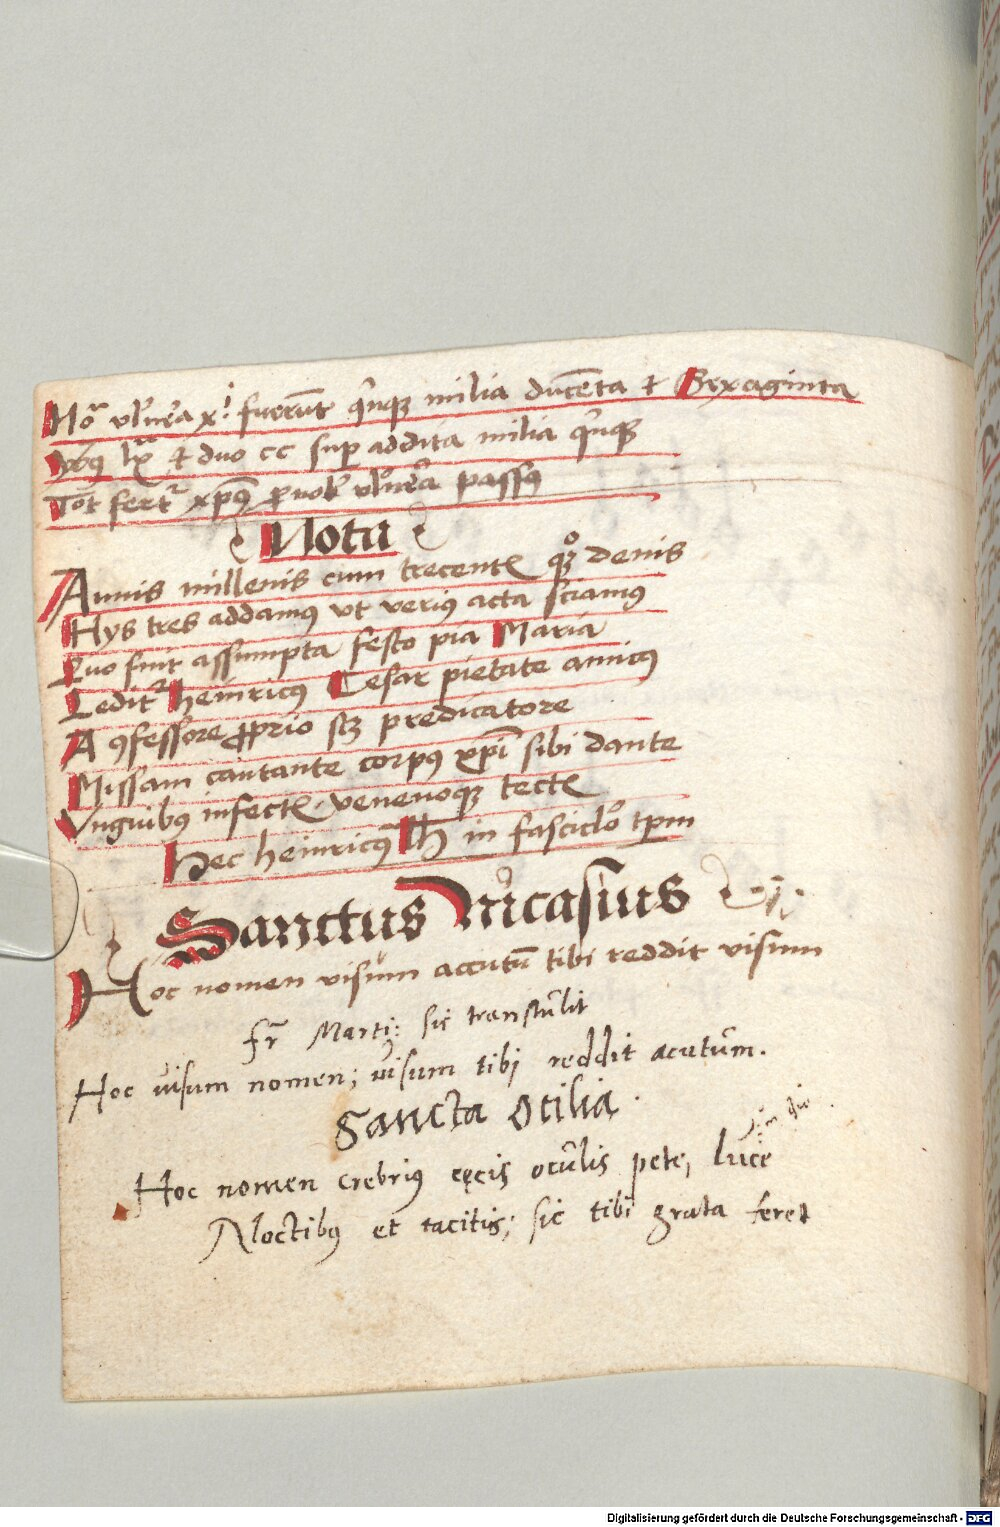 Notꝛ vl'nera xi fuerūt qͥnqꝫ milia ducēta ⁊ Sexaginta
lx ⁊ duo cc super addita milia qͥnqꝫ
Tot fertͬ xpūs ꝓ nob' vl'nera passus
Nota
Annis millenis cum trecentꝭ qꝫ denis
Hys tres addamꝰ vt verius acta sciamꝰ
Quo fuit assumpta festo pia Maria
Leditͬ heinricꝰ Cesar pietate amicꝰ
A ꝯfessore ꝓprio scꝫ predicatore
Missam cantante corpꝰ xpī sibi dante
Vnguibꝰ infectꝭ venenoqꝫ tectꝭ
Hec heinricꝰ in fasciclo tꝑm
Sanctus Nicasius
Hoc nomen visum accutū tibi reddit visum
fr Marti: sic transtulit
Hoc uisum nomen; uisum tibi reddit acutum.
Sancta Otilia.
Hoc nomen crebrius cęcis oculis pete, luce
Noctibꝰ et tacitis; sic tibi grata feret
Digitalisierung gefördert durch die Deutsche Forschungsgemeinschaft - DFG